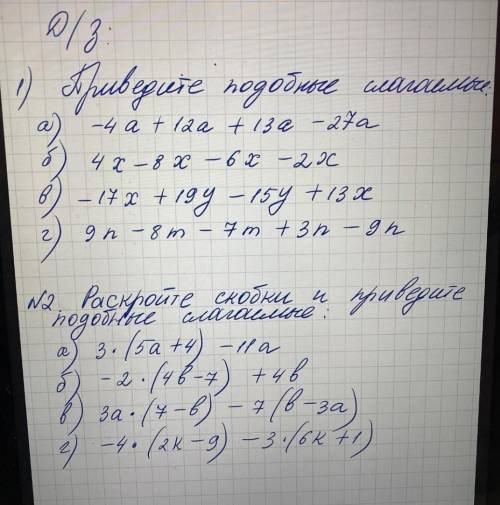 Д/З.
1) Приведите подобные слагаемые:
а) -4а + 12а + 13а - 27а
б) 4х - 8х - 6х - 2х
в) -17х + 19у - 15у + 13х
г) 9n - 8m - 7m + 3n - 9n
N2. Раскройте скобки и приведите
подобные слагаемые:
а) 3·(5а+4) - 11а
б) -2·(4в-7) + 4в
в) 3а·(7-в) - 7(в-3а)
г) -4·(2к-9) - 3·(6к+1)